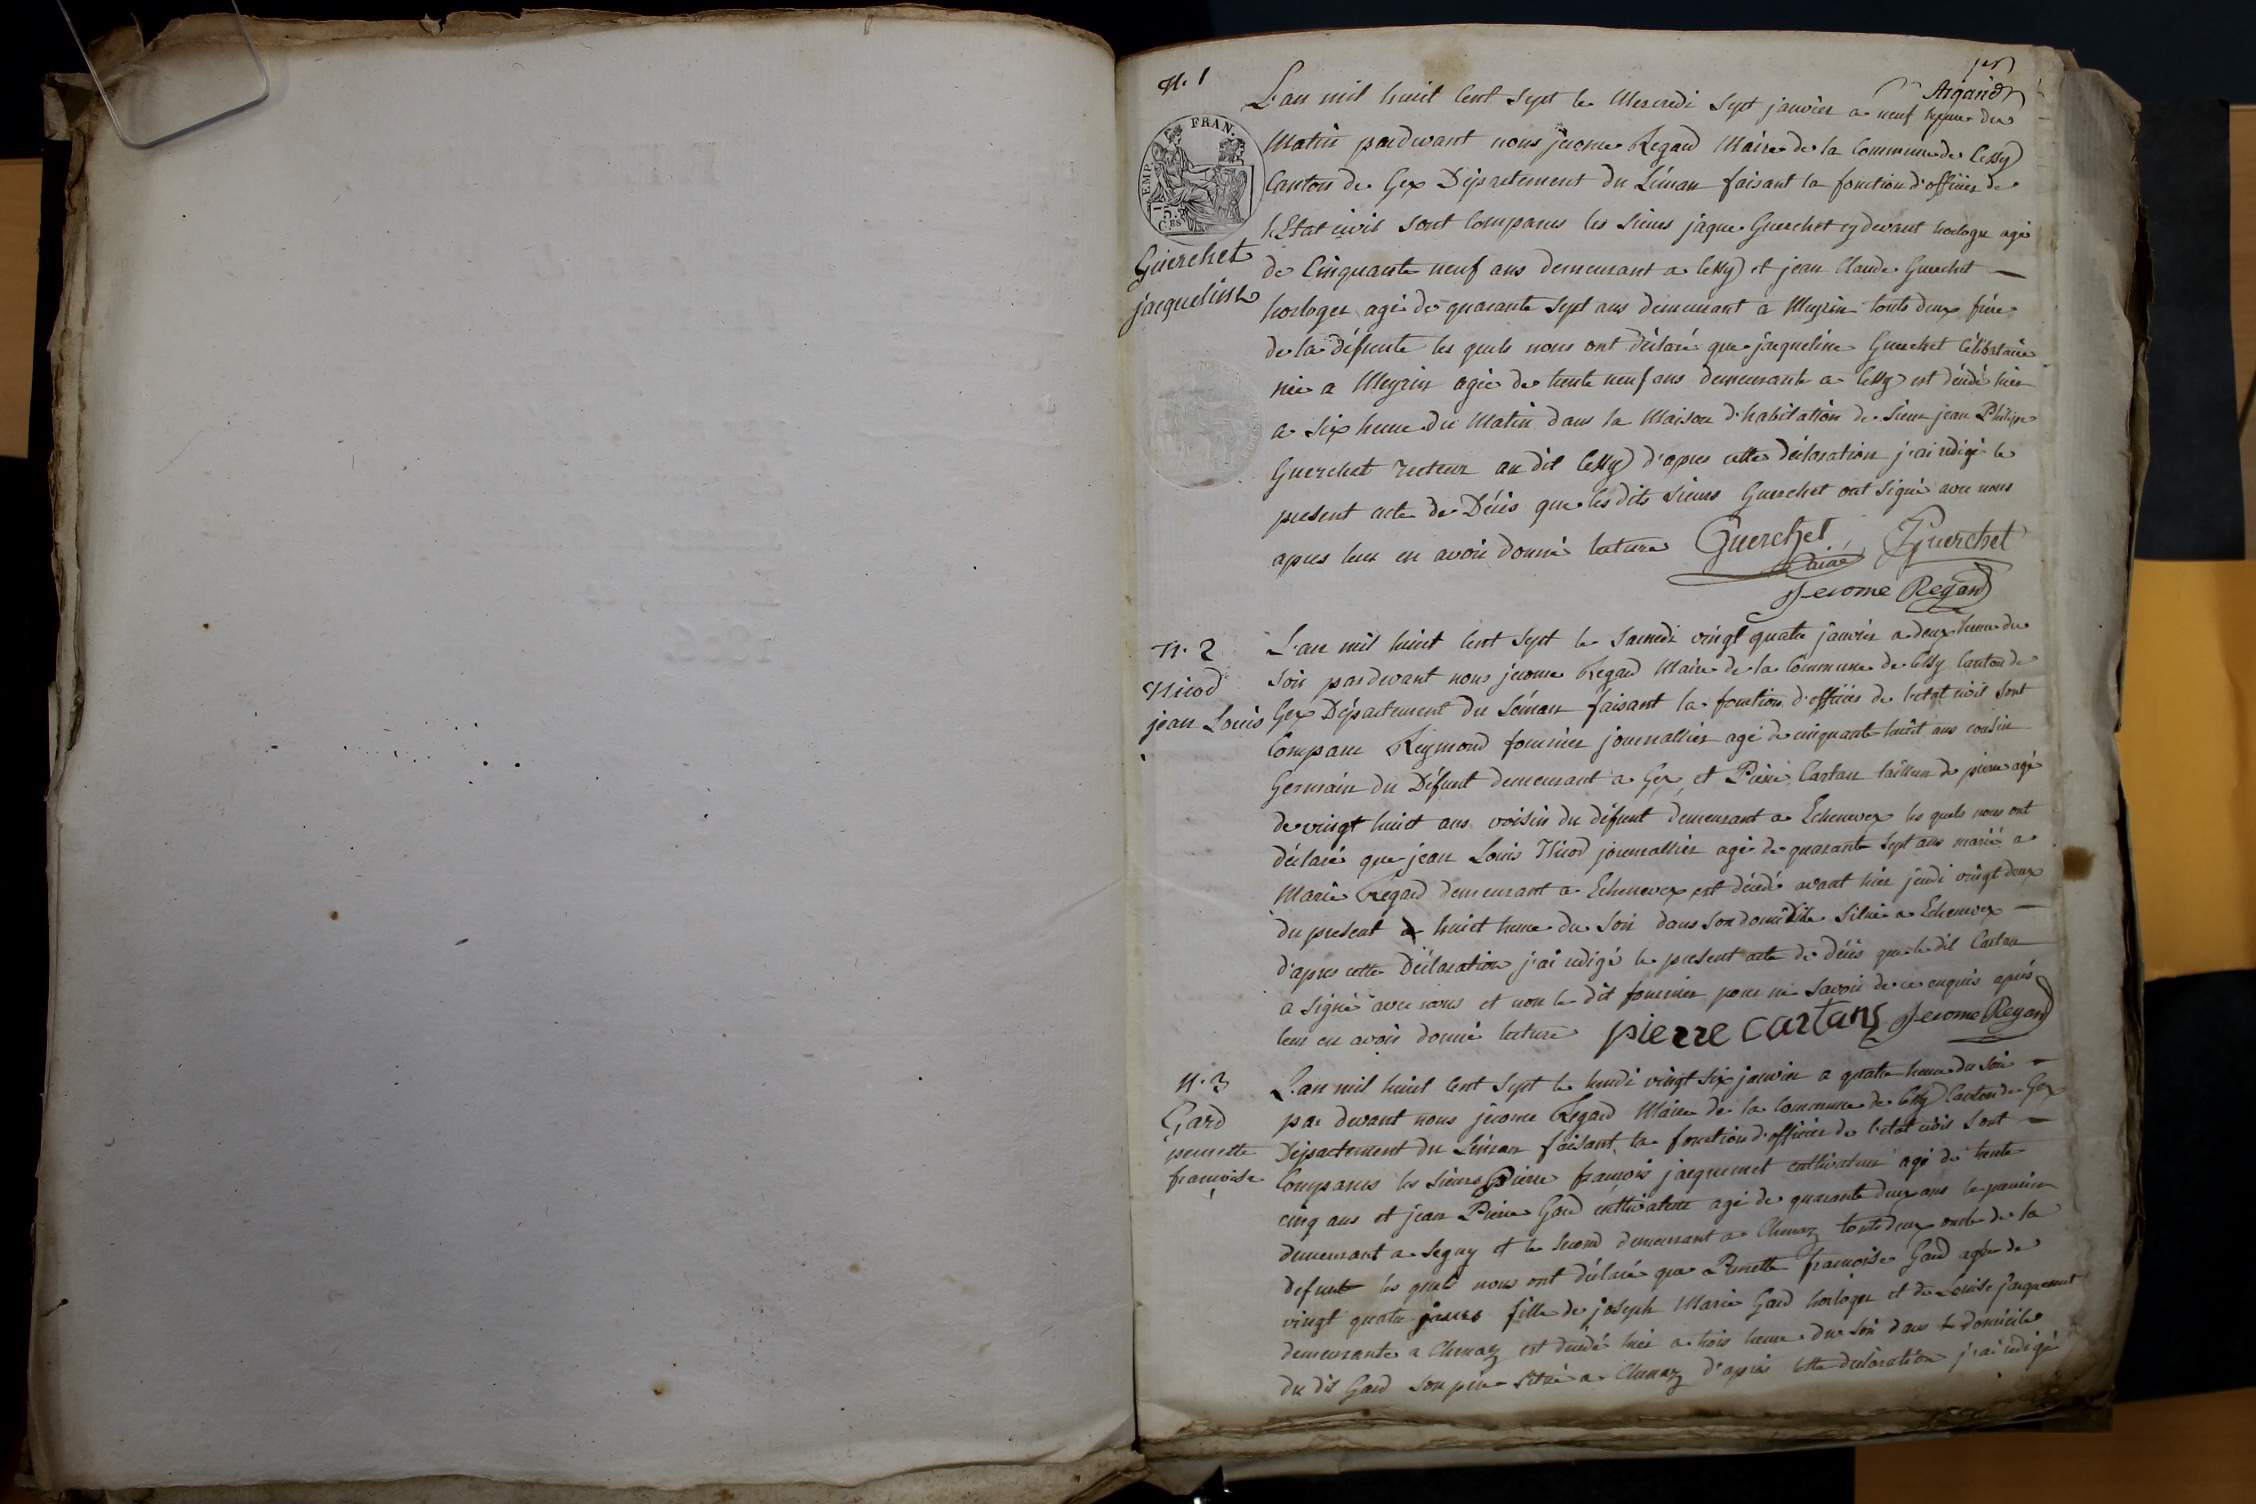 1er
Argand
N. 1
L'an mil huit Cent Sept le Mercredi Sept janvier a neuf heure du
Matin pardevant nous jerome Regard Maire de la Commune de Cessy
Canton de Gex Département du Léman faisant la fonction d'officier de
l'Etat civil sont Comparus les Sieurs jaque Guerchet cydevant horloger agé
de Cinquante neuf ans demeurant a Cessy et jean Claude Guerchet —
horloger agé de quarante Sept ans demeurant a Meyrin touts deux frère
de la défunte les quels nous ont déclaré que jacqueline Guerchet Célibataire
née a Meyrin agée de trente neuf ans demeurante a Cessy est décédé hier
a Six heure du Matin dans la Maison d'habitation de Sieur jean Philipe
Guerchet recteur au dit Cessy d'apres cette déclaration j'ai rédigé le
present acte de Décès que les dits Sieurs Guerchet ont signé avec nous
apres leur en avoir donné lecture Guerchet Guerchet
ainé
Jerome Regard
EMP. FRAN.
75.
CES
Guerchet
jacqueline
N. 2
Nicod
jean Louis
L'an mil huit Cent Sept le Samedi vingt quatre janvier a deux heure du
Soir pardevant nous jerome Regard Maire de la Commune de Cessy Canton de
Gex Département du Léman faisant la fonction d'officier de l'etat civil Sont
Comparu Reymond fournier journallier agé de cinquante huit ans cousin
Germain du Défunt demeurant a Gex, et Pierre Cartan tailleur de pierre agé
de vingt huit ans voisin du défunt demeurant a Echenevex les quels nous ont
déclaré que jean Louis Nicod journallier agé de quarante Sept ans marié a
Marie Regard demeurant a Echenevex est décédé avant hier jeudi vingt deux
du present a huit heure du Soir dans son domicile Situé a Echenevex —
d'apres cette Déclaration j'ai rédigé le present acte de décès que le dit Cartan
a signé avec nous et non le dit fournier pour ne Savoir de ce enquis après
leur en avoir donné lecture pierre cartans Jerome Regard
N. 3
Gard
pernette
francoise
L'an mil huit Cent Sept le lundi vingt Six janvier a quatre heure du Soir —
par devant nous jerome Regard Maire de la Commune de Cessy Canton de Gex
Département du Léman faisant la fonction d'officier de l'etat civil Sont —
Comparus les Sieurs Pierre françois jacquemet cultivateur agé de trente
cinq ans et jean Pierre Gard cultivateur agé de quarante deux ans le premier
demeurant a Segny et le Second demeurant a Chenaz touts deux oncle de la
defunte les quels nous ont déclaré que Pernette francoise Gard agée de
vingt quatre jours fille de joseph Marie Gard horloger et de Louise jacquemet
demeurante a Chenaz est décédé hier a trois heure du Soir dans le domicile
du dit Gard Son père Situé a Chenaz d'après cette declaration j'ai rédigé